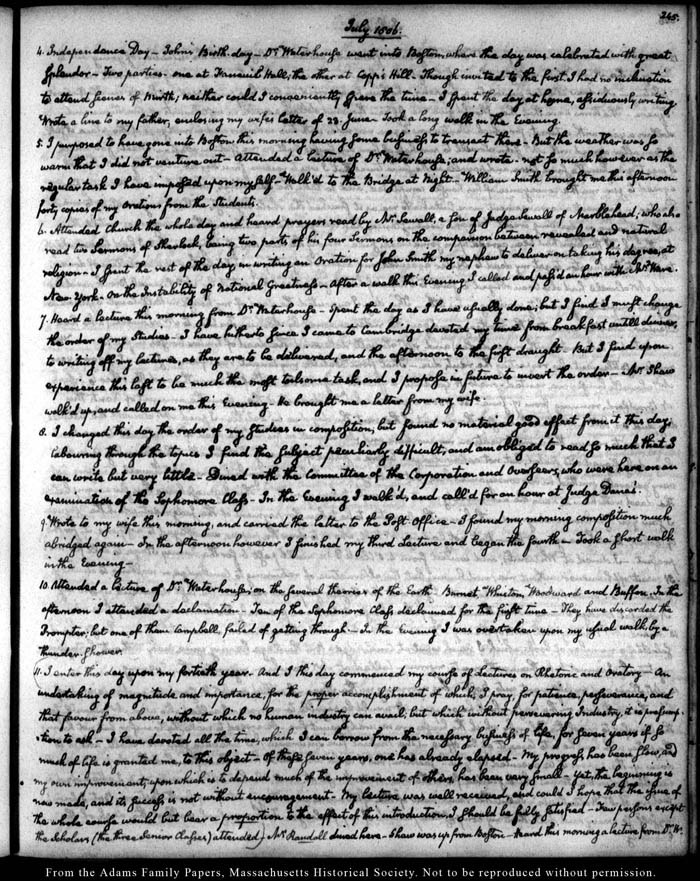 245.
July 1806.
4. Independance Day – John's Birth day – Dr. Waterhouse went into Boston, where the day was celebrated with great
splendor – Two parties – one at Faneuil Hall; the other at Copp's Hill – Though invited to the first I had no inclination
to attend scenes of mirth; neither could I conveniently spare the time – I spent the day at home, assiduously writing
Wrote a line to my father, enclosing my wife's letter of 28. June – Took a long walk in the Evening.
5. I purposed to have gone into Boston this morning having some business to transact there – But the weather was so
warm that I did not venture out – Attended a lecture of Dr. Waterhouse; and wrote – not so much however as the
regular task I have imposed upon myself – Walk'd to the Bridge at Night – William Smith brought me this afternoon
forty copies of my Oration from the Students.
6. Attended Church the whole day and heard prayers read by Mr. Sewall, a son of Judge Sewall of Marblehead; who also
read two Sermons of Sherlock, being two parts, of his four Sermons on the comparison between revealed and natural
religion – I spent the rest of the day in writing an Oration for John Smith my nephew to deliver on taking his degree, at
New-York – On the Instability of National Greatness – After a walk this Evening I called and pass'd an hour with Mr. Ware.
7. Heard a lecture this morning from Dr. Waterhouse – Spent the day as I have usually done; but I find I must change
the order of my Studies – I have hitherto since I came to Cambridge devoted my time from breakfast untill dinner,
to writing off my lectures, as they are to be delivered, and the afternoon to the first draught. But I find upon
experience this last to be much the most toilsome task, and I propose in future to invert the order – Mr. Shaw
walk'd up, and called on me this Evening – He brought me a letter from my wife.
8. I changed this day the order of my Studies in composition, but found no material good effect from it this day;
labouring through the topics I find the subject peculiarly difficult, and am obliged to read so much that I
can write but very little – Dined with the Committee of the Corporation and Overseers, who were here on an
examination of the Sophomore Class – In the Evening I walk'd, and call'd for an hour at Judge Dana's.
9. Wrote to my wife this morning, and carried the letter to the Post-Office – I found my morning composition much
abridged again – In the afternoon however I finished my third Lecture and began the fourth – Took a short walk
in the Evening –
10. Attended a lecture of Dr. Waterhouse; on the several theories of the Earth – Burnet Whiston, Woodward and Buffon. In the
afternoon I attended a declamation – Ten of the Sophomore Class declaimed for the first time – They have discarded the
Prompter; but one of them Campbell, failed of getting through – In the Evening I was overtaken upon my usual walk, by a
thunder-shower.
11. I enter this day upon my fortieth year – And I this day commenced my course of lectures on Rhetoric and Oratory – An
undertaking of magnitude and importance, for the proper accomplishment of which, I pray, for patience, perseverance, and
that favour from above, without which no human industry can avail, but which without persevering Industry, it is presump-
-tion to ask – I have devoted all the time, which I can borrow from the necessary business of life, for seven years of so
much of life is granted me, to this object – Of these seven years, one has already elapsed – My progress has been slow, and
my own improvement, upon which is to depend much of the improvement of others, has been very small – Yet, the beginning is
now made, and its success is not without encouragement – My lecture was well received, and could I hope that the issue of
the whole course would but bear a proportion to the effect of this introduction, I should be fully satisfied – Few persons except
the Scholars (the three Senior Classes) attended – Mr. Randall dined here – Shaw was up from Boston – Heard this morning a lecture from Dr. W.
From the Adams Family Papers, Massachusetts Historical Society. Not to be reproduced without permission.